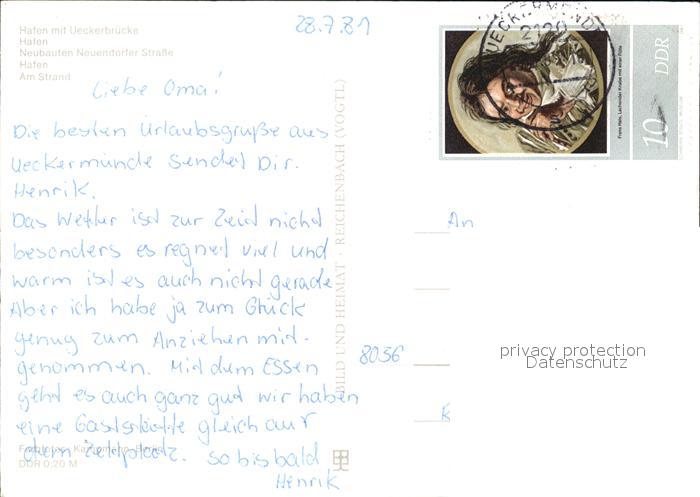 Hafen mit Ueckerbrücke
Hafen
Neubauten Neuendorfer Straße
Hafen
Am Strand
28.7.81
Liebe Oma!
Die besten Urlaubsgruße aus
Ueckermünde sendet Dir.
Henrik.
Das Wetter ist zur Zeit nicht
besonders es regnet viel und
warm ist es auch nicht gerade
Aber ich habe ja zum Glück
genug zum Anziehen mit-
genommen. Mit dem Essen
geht es auch ganz gut wir haben
eine Gaststätte gleich auf
dem Zeltplatz. so bis bald
Henrik
DDR 0,20 M
BILD UND HEIMAT · REICHENBACH (VOGTL)
UECKERMÜNDE
2120
Frans Hals, Lachender Knabe mit einer Flöte
10
DDR
An
8036
K
privacy protection
Datenschutz